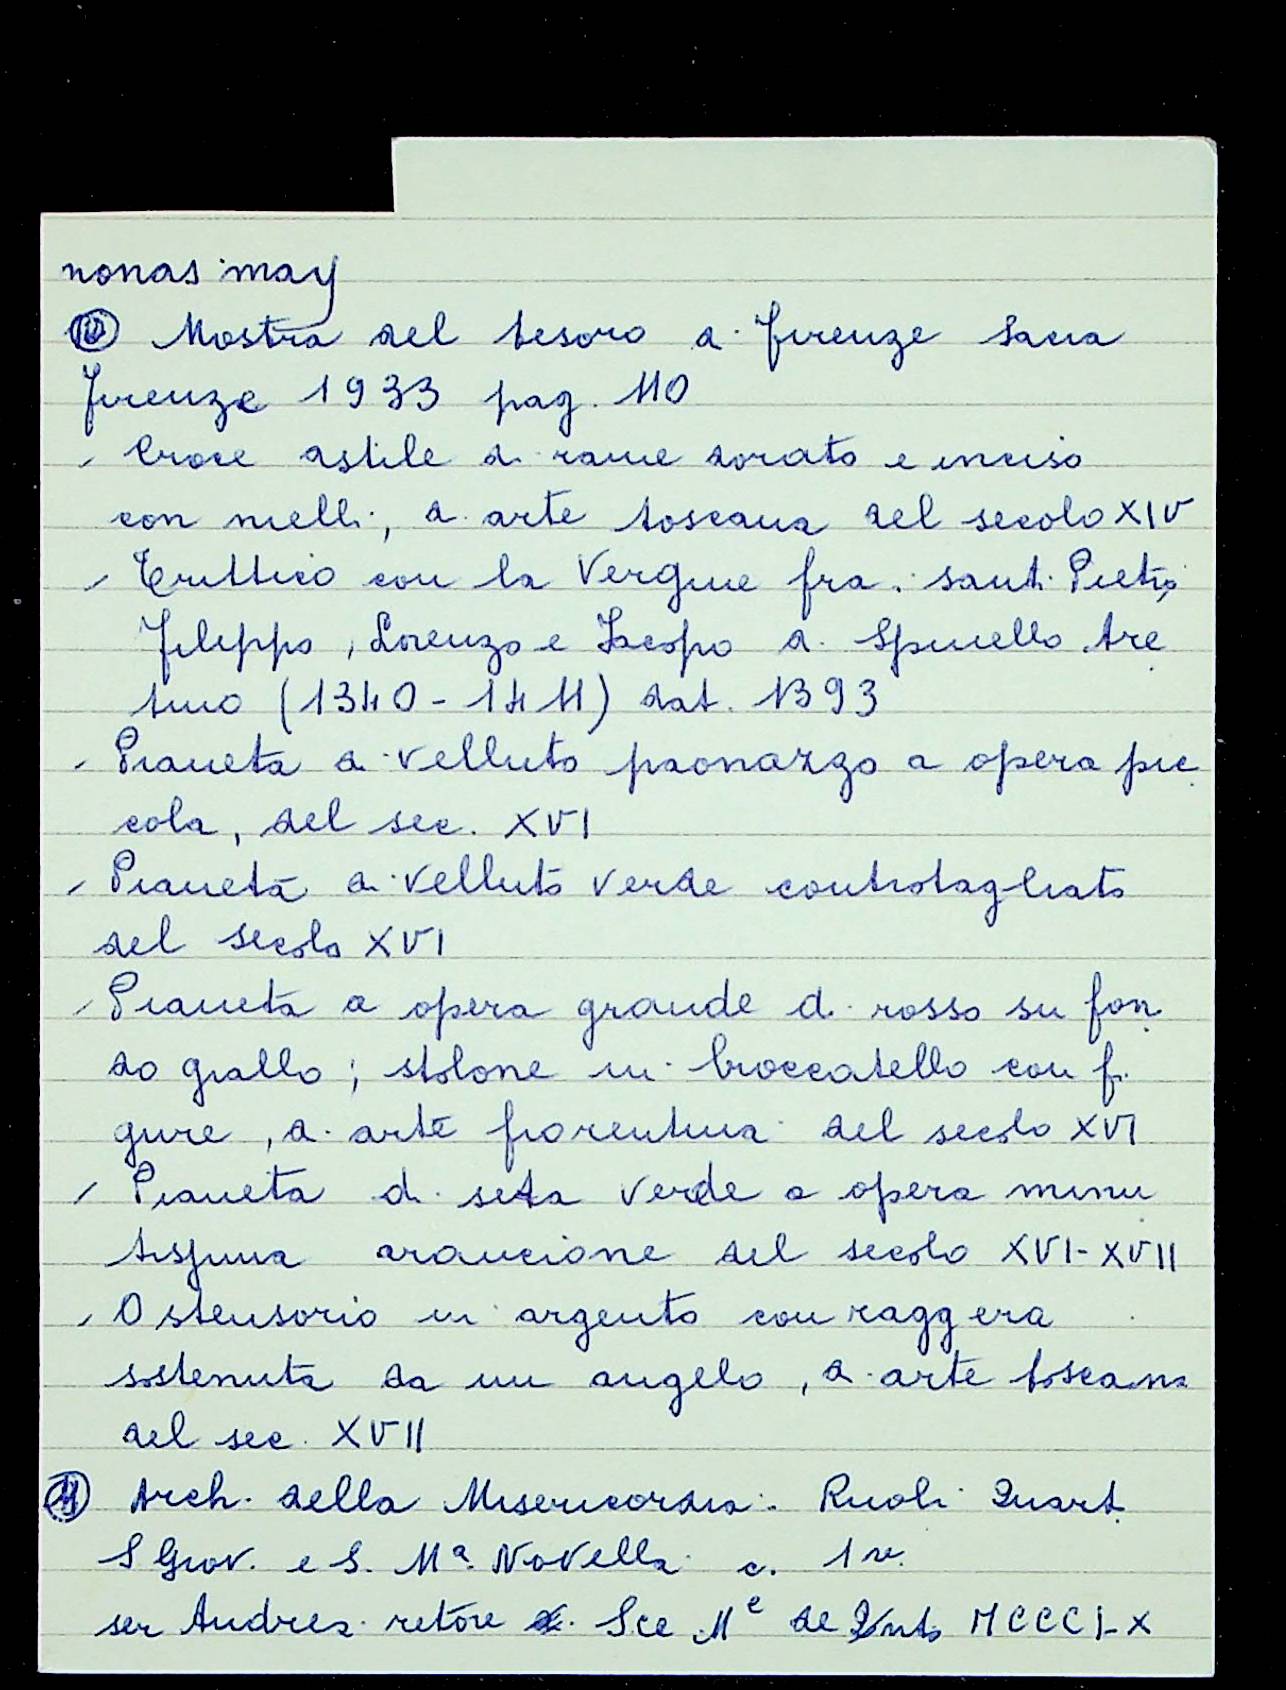 nonas may
⑩ Mostra del tesoro di Firenze Sacra
Firenze 1933 pag. 110
- Croce astile di rame dorato e inciso
con nielli, di arte toscana del secolo XIV
- Trittico con la Vergine fra i santi Pietro,
Filippo, Lorenzo e Jacopo di Spinello Are
tino (1340-1411) dat. 1393
- Pianeta di velluto paonazzo a opera pic
cola, del sec. XVI
- Pianeta di velluto verde controtagliato
del secolo XVI
- Pianeta a opera grande di rosso su fon
do giallo; stolone in broccatello con fi
gure, di arte fiorentina del secolo XVI
- Pianeta di seta verde a opera minu
tissima arancione del secolo XVI-XVII
- Ostensorio in argento con raggera
sostenuta da un angelo, di arte toscana
del sec. XVII
⑪ Arch. della Misericordia. Ruoli Quart.
S Giov. e S. Mª Novella c. 1 v.
ser Andrea retore Sce Me de Quto MCCCLX